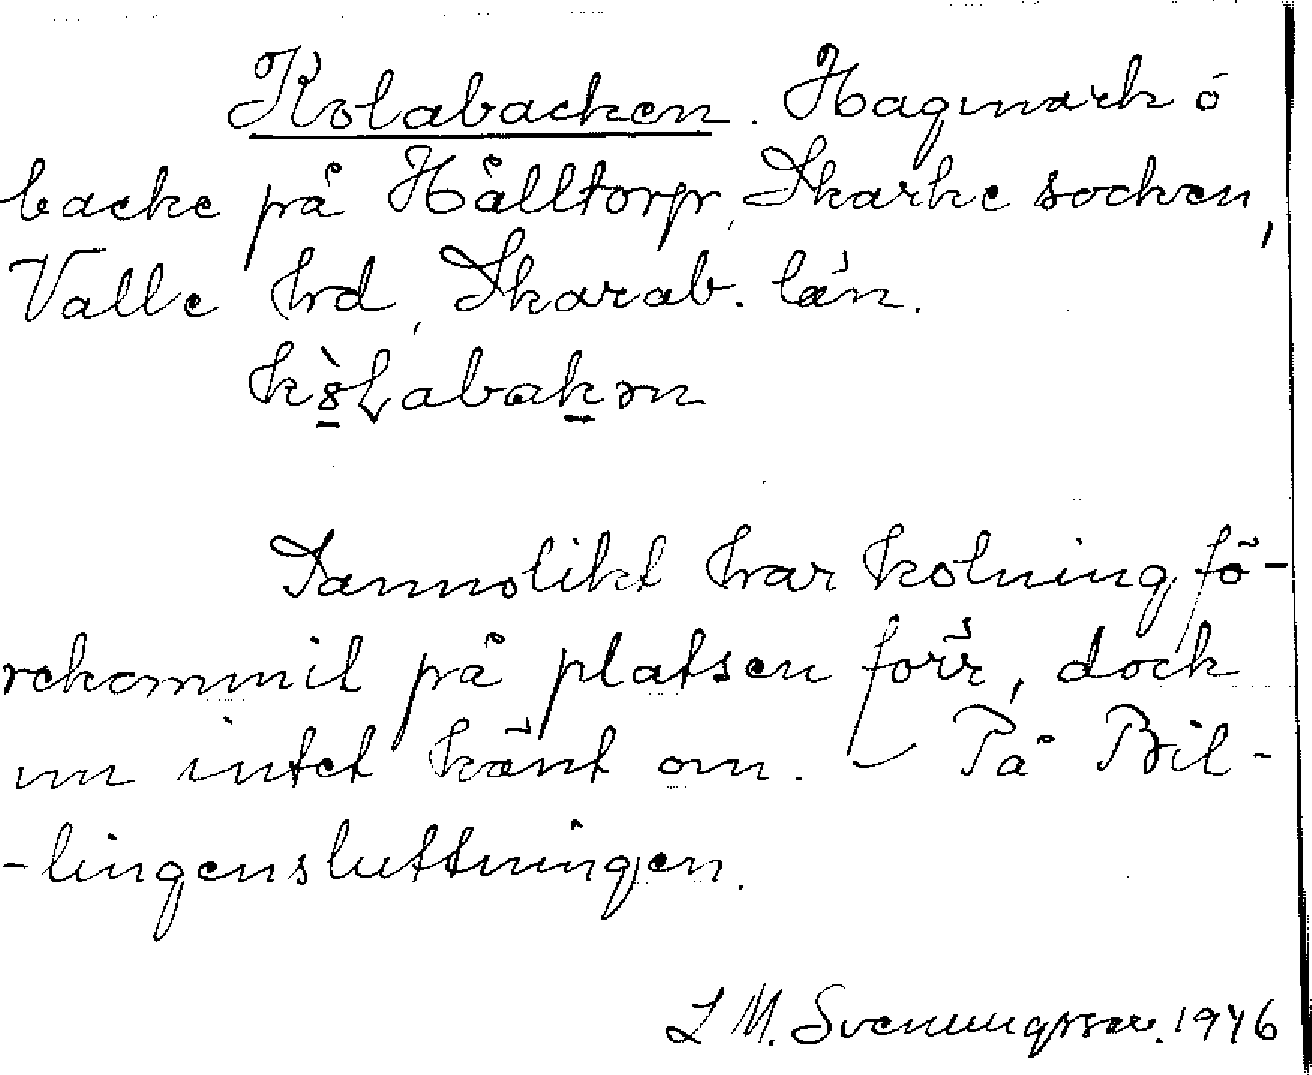 Kolabacken. Hagmark ó
backe på Hålltorp, Skarke socken,
Valle hrd, Skarab. län.
Sannolikt har kolning fö-
rekommit på platsen förr, dock
nu intet känt om. – På Bil-
-lingensluttningen.
L M. Svenungsson. 1946